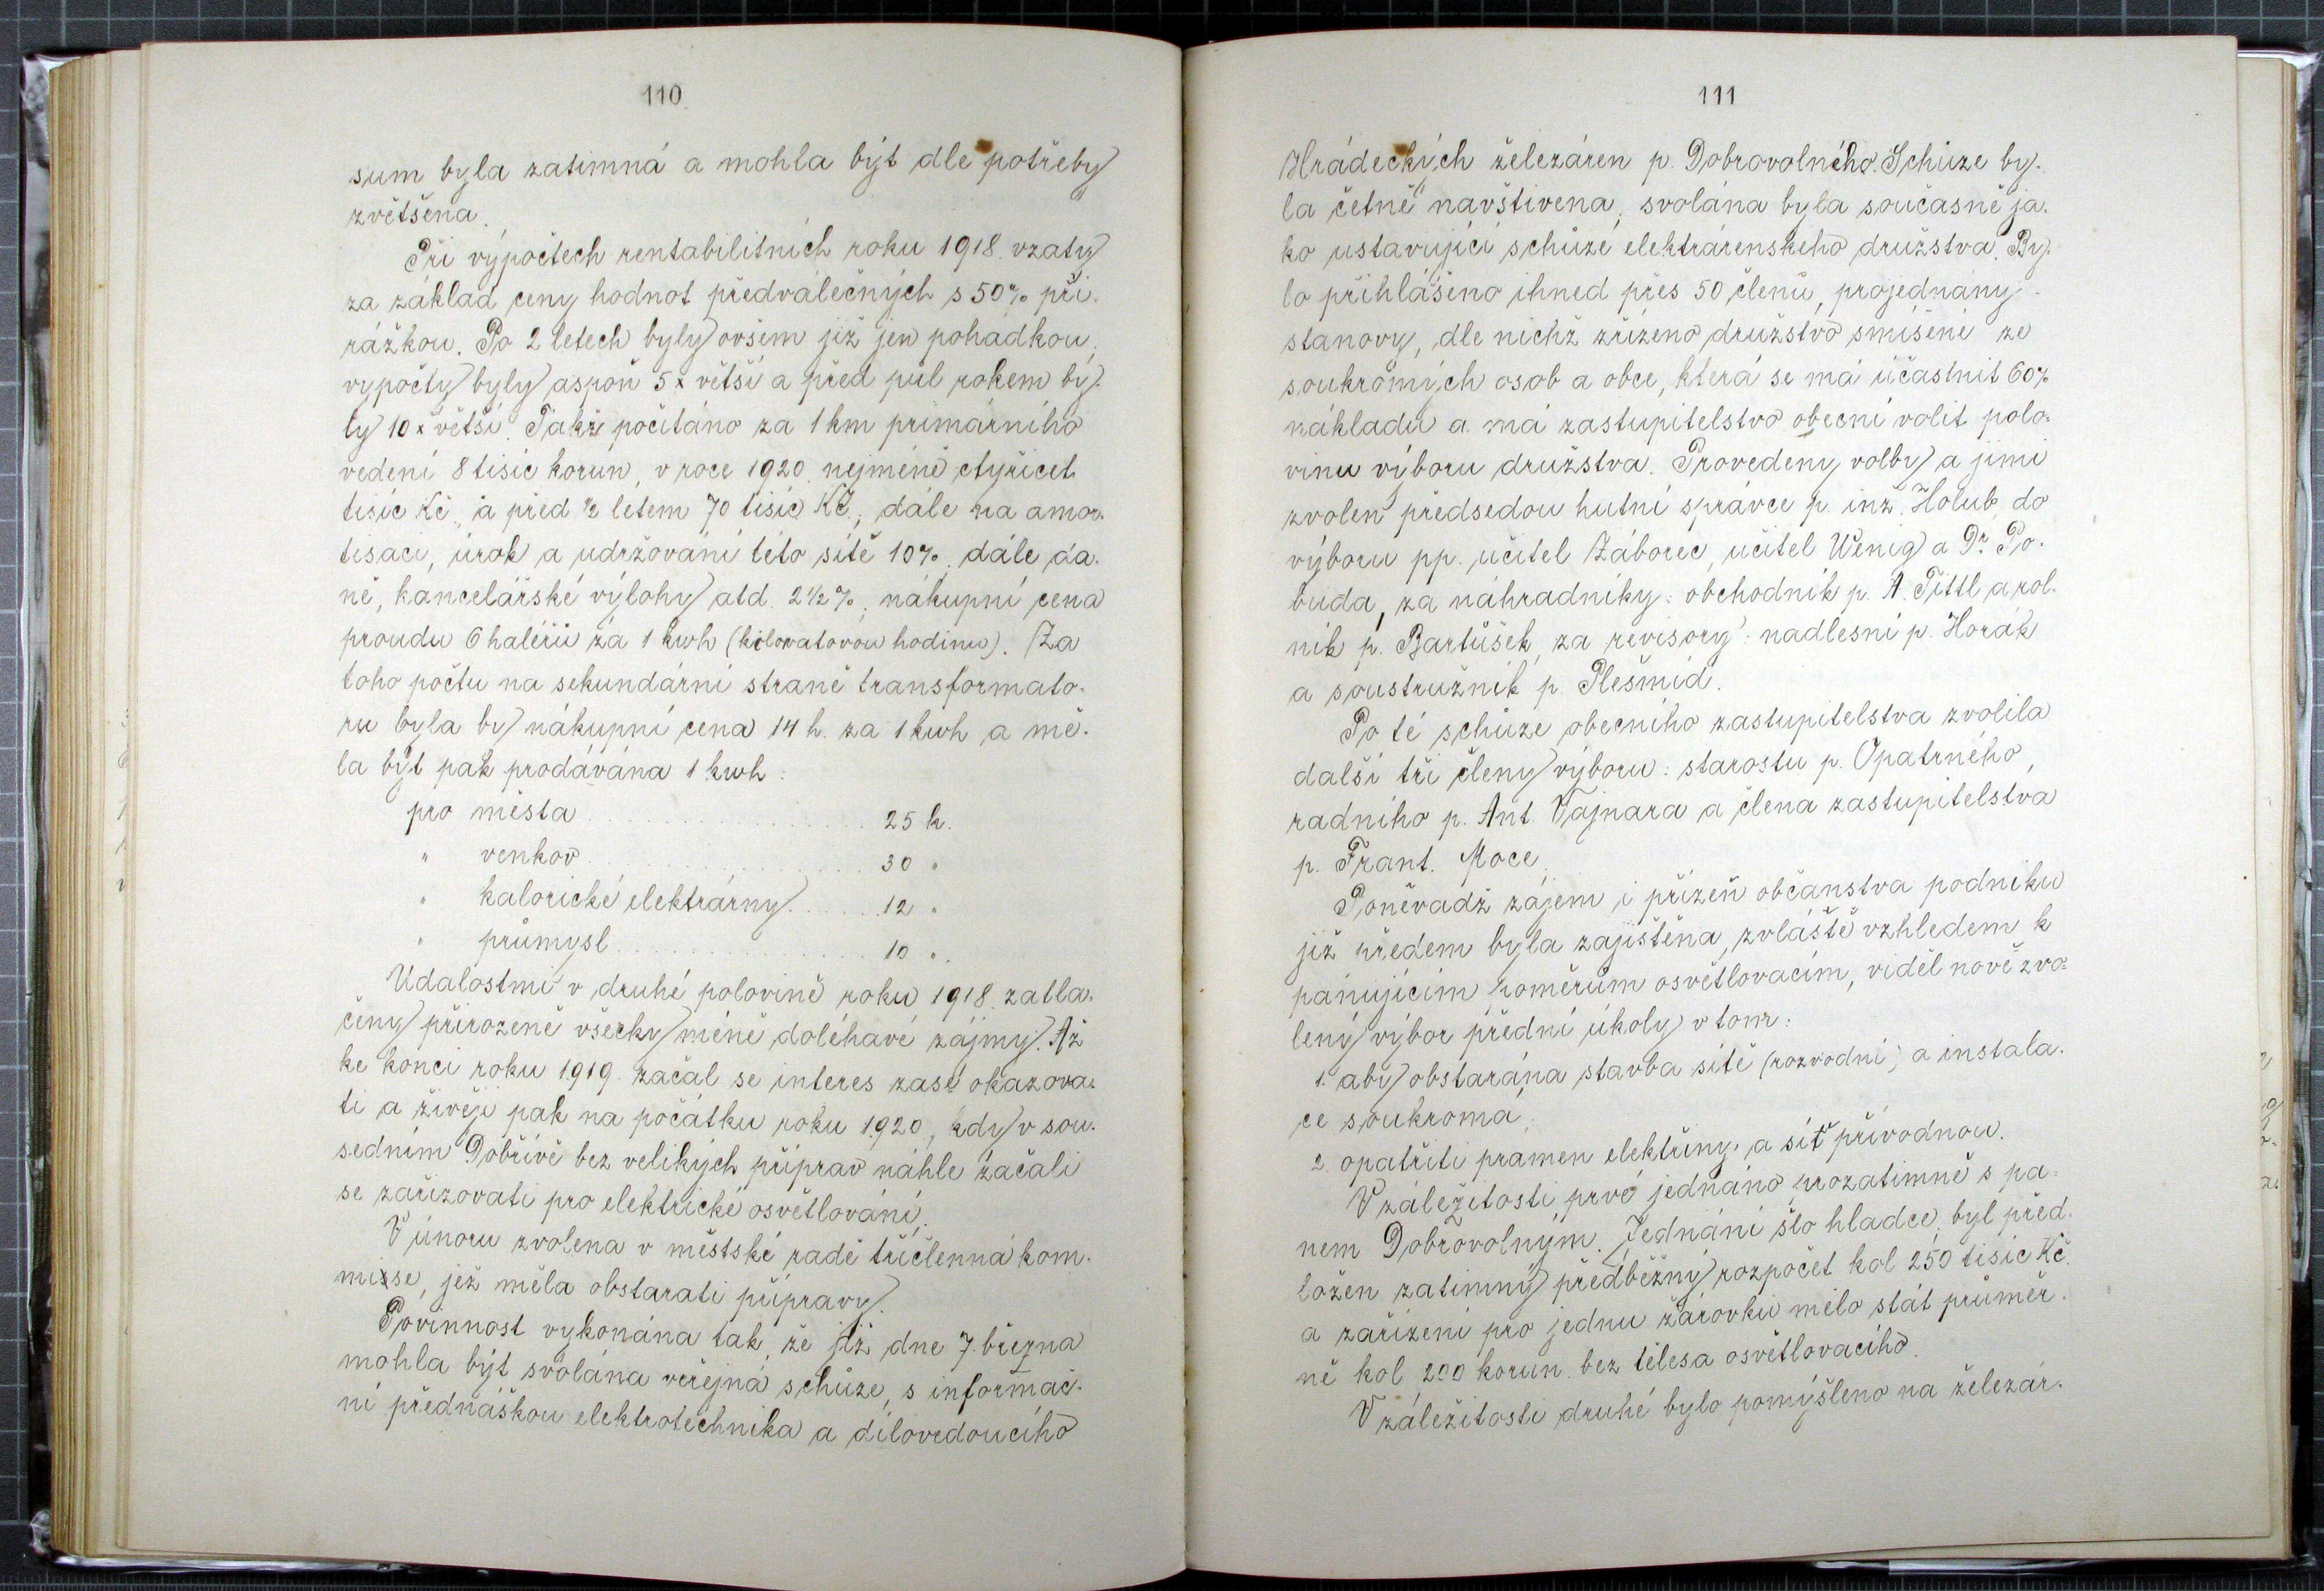 110.
sum byla zatimná a mohla býti dle potřeby
zvětšena.
Při výpočtech rentabilitních roku 1918. vzaty
za základ ceny hodnot předválečných s 50% při-
rážkou. Po 2 letech byly ovšem již jen pohádkou,
vypočty byly aspoň 5x větší a před půl rokem by-
ly 10x větší. Takže počítáno za 1 km primárního
vedení 8 tisíc korun, v roce 1920. nejméně čtyřicet
tisíc Kč., a před ½ letem 70 tisíc Kč., dále na amor-
tisaci, úrok a udržování této sítě 10%, dále da-
ně, kancelářské výlohy atd. 2½%, nákupní cena
proudu 6 haléřů za 1 kwh (kilowatovou hodinu). Za
toho počtu na sekundární straně transformato-
ru byla by nákupní cena 14 h. za 1 kwh a mě-
la být pak prodávána 1 kwh:
pro města . . . . . . . . . . 25 h.
" venkov . . . . . . . . . . 30 "
" kalorické elektrárny . . . . . 12 "
" průmysl . . . . . . . . . . 10 ".
Událostmi v druhé polovině roku 1918. zatla-
čeny přirozeně všecky méně doléhavé zájmy. Až
ke konci roku 1919. začal se interes zase okazova-
ti a živěji pak na počátku roku 1920, kdy v sou-
sedním Dobřívě bez velikých příprav náhle začali
se zařizovati pro elektrické osvětlování.
V únoru zvolena v městské radě tříčlenná kom-
misse, jež měla obstarati přípravy.
Povinnost vykonána tak, že již dne 7. března
mohla být svolána veřejná schůze, s informač-
ní přednáškou elektrotechnika a dílovedoucího
111
Hrádeckých železáren p. Dobrovolného. Schůze by-
la četně navštívena, svolána byla současně ja-
ko ustavující schůze elektrárenského družstva. By-
lo přihlášeno ihned přes 50 členů, projednány
stanovy, dle nichž zřízeno družstvo smíšené ze
soukromých osob a obce, která se má účastnit 60%
nákladu a má zastupitelstvo obecní volit polo-
vinu výboru družstva. Provedeny volby a jimi
zvolen předsedou hutní správce p. inž. Holub, do
výboru pp. učitel Záborec, učitel Wenig a Dr. Po-
buda, za náhradníky: obchodník p. A. Tittl a rol-
ník p. Bartůšek, za revisory: nadlesní p. Horák
a soustružník p. Plešmíd.
Po té schůze obecního zastupitelstva zvolila
další tři členy výboru: starostu p. Opatrného,
radního p. Ant. Vajnara a člena zastupitelstva
p. Frant. Moce.
Poněvadž zájem i přízeň občanstva podniku
již předem byla zajištěna, zvláště vzhledem k
panujícím poměrům osvětlovacím, viděl nově zvo-
lený výbor přední úkoly v tom:
1. aby obstarána stavba sítě (rozvodní) a instala-
ce soukromá,
2. opatřiti pramen elektřiny a síť přívodnou.
V záležitosti prvé jednáno prozatimně s pa-
nem Dobrovolným. Jednání šlo hladce, byl před-
ložen zatimný předběžný rozpočet kol 250 tisíc Kč.
a zařízení pro jednu žárovku mělo stát průměr-
ně kol 200 korun bez tělesa osvětlovacího.
V záležitosti druhé bylo pomýšleno na železár-